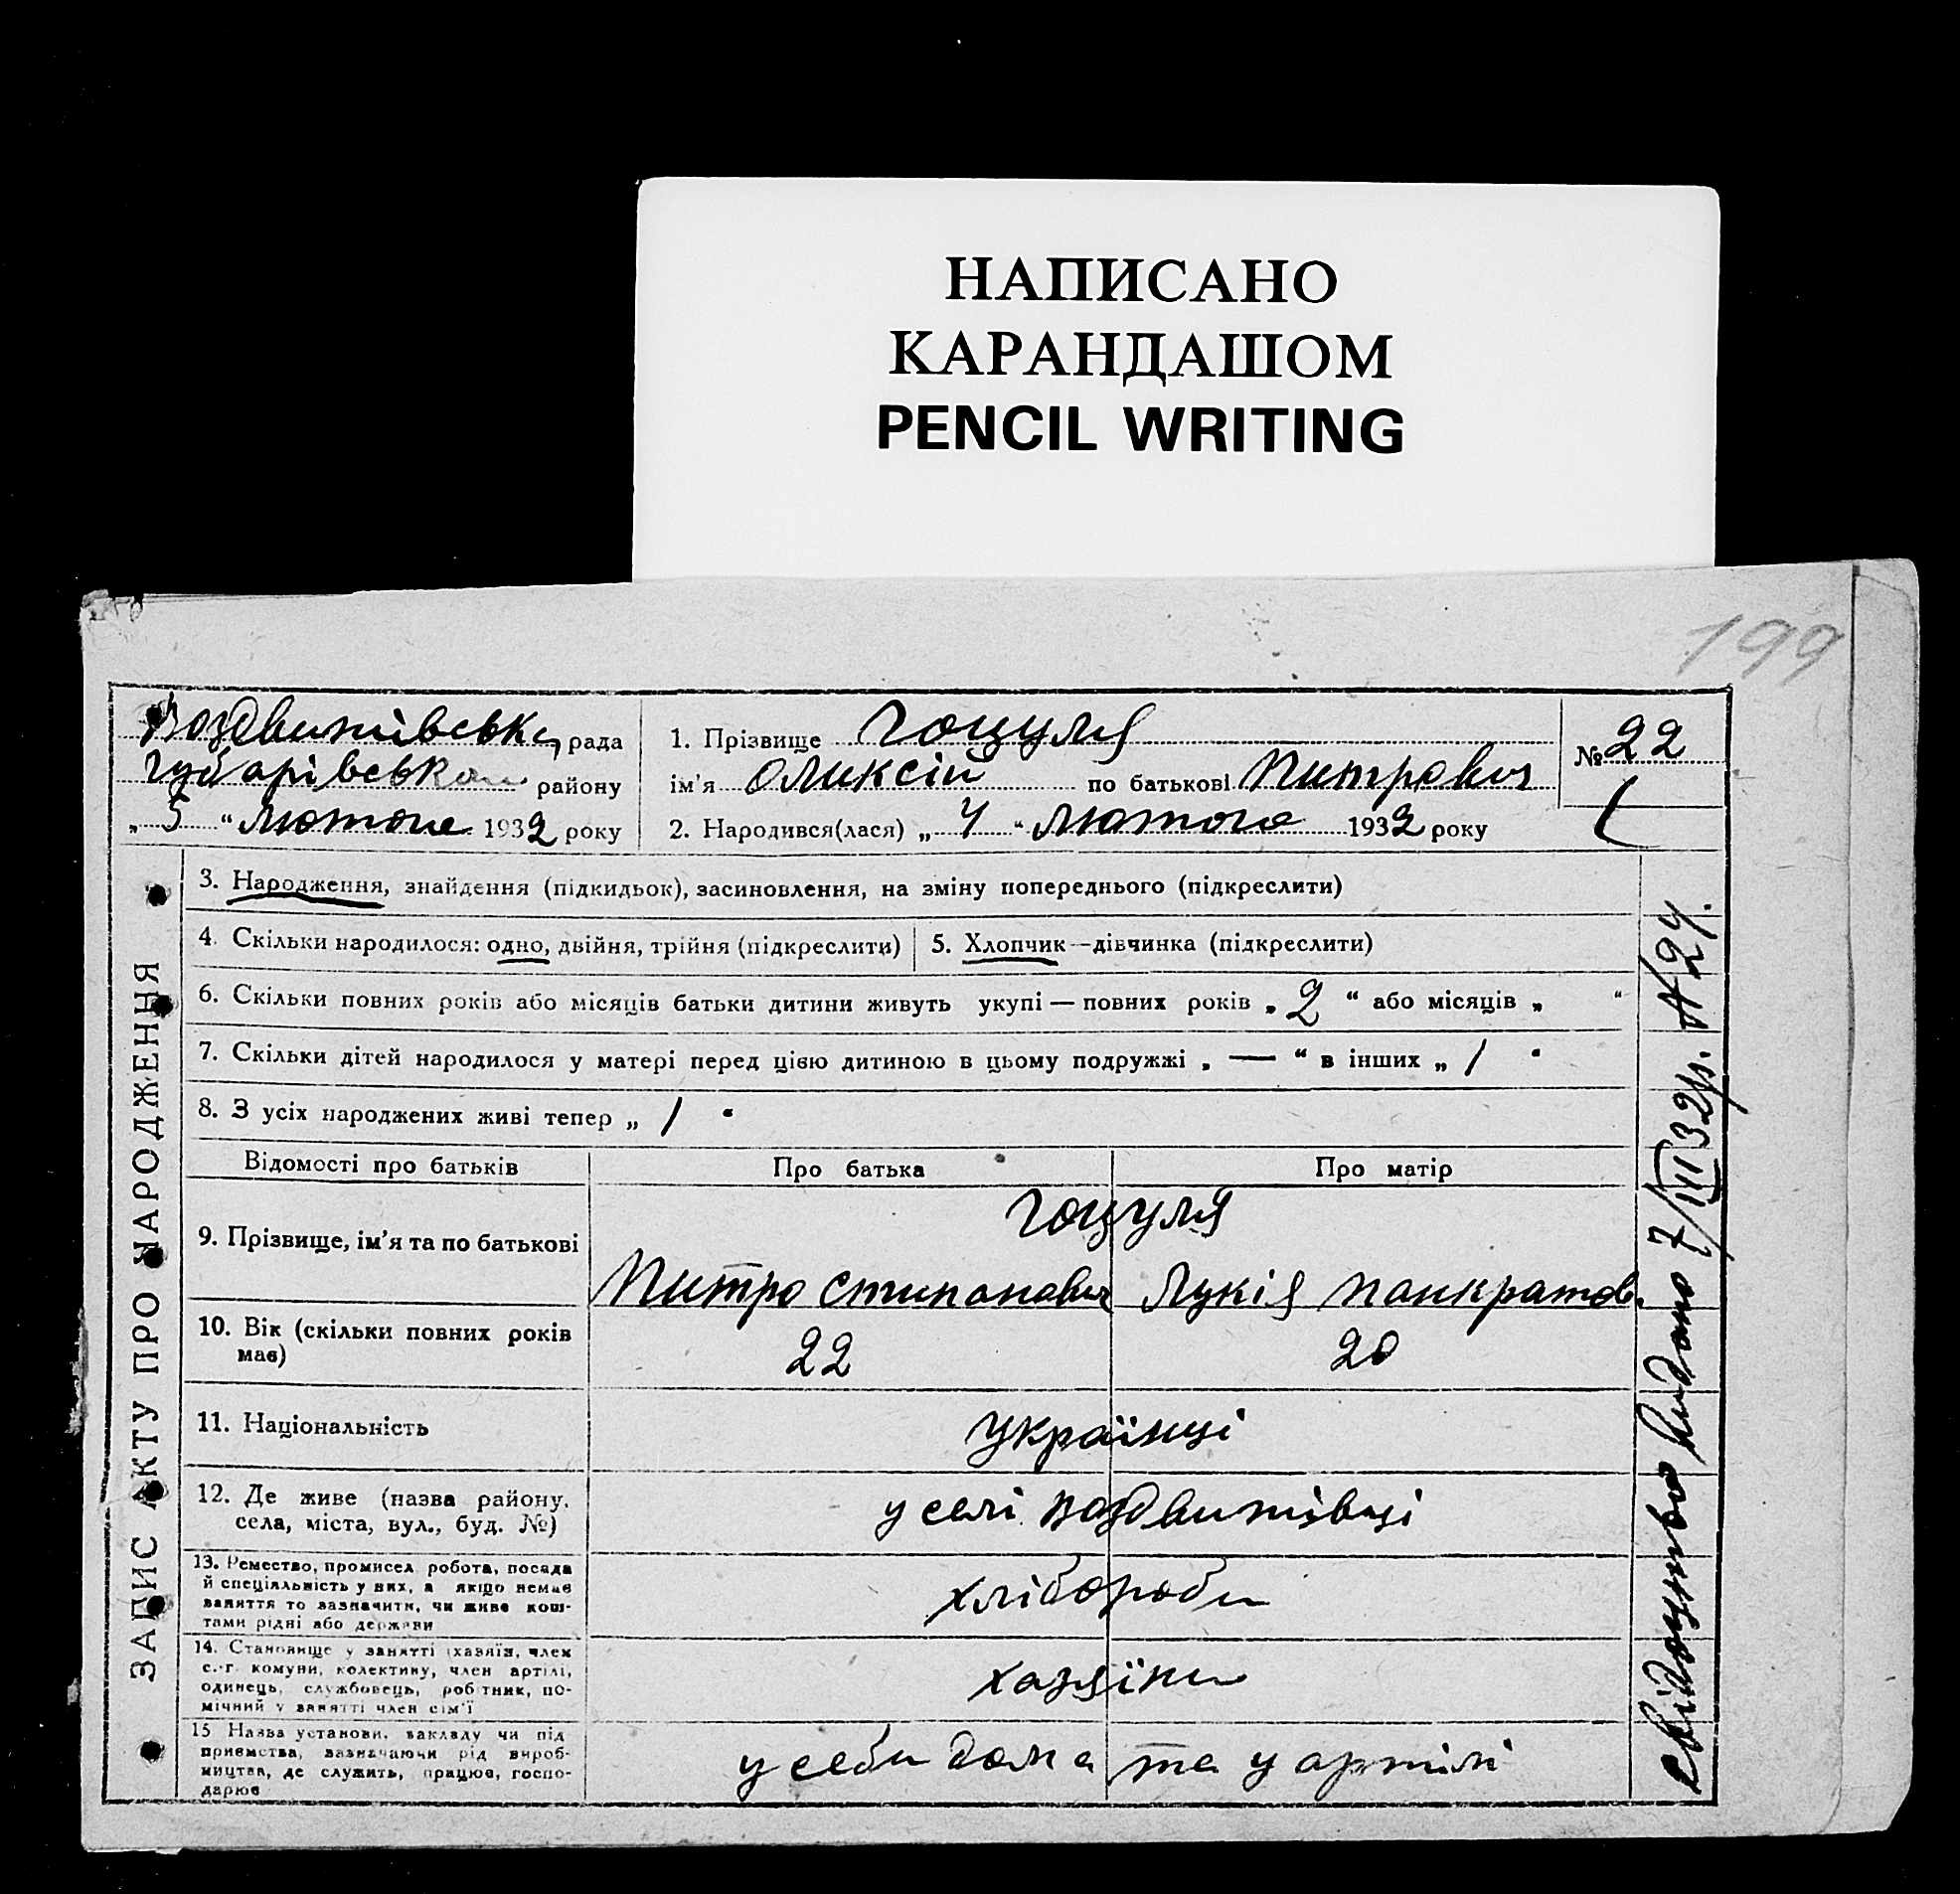 НАПИСАНО
КАРАНДАШОМ
PENCIL WRITING
199
Воздвижівська рада
Губарівськом району
„ 5 “ Лютого 1932 року
1. Прізвище Гоцуля
ім'я Оликсій по батькові Питрович
2. Народився(лася) „ 4 “ Лютого 1932 року
№ 22
ЗАПИС АКТУ ПРО НАРОДЖЕННЯ
3. Народження, знайдення (підкидьок), засиновлення, на зміну попереднього (підкреслити)
4. Скільки народилося: одно, двійня, трійня (підкреслити)
5. Хлопчик—дівчинка (підкреслити)
6. Скільки повних років або місяців батьки дитини живуть укупі — повних років „ 2 “ або місяців „ “
7. Скільки дітей народилося у матері перед цією дитиною в цьому подружжі „ — “ в інших „ 1 “
8. З усіх народжених живі тепер „ 1 “
Відомості про батьків Про батька Про матір
9. Прізвище, ім'я та по батькові
Гоцуля
Питро Стипанович Лукія Панкратов.
10. Вік (скільки повних років має) 22 20
11. Національність Українці
12. Де живе (назва району, села, міста, вул., буд. №)
у селі Воздвижівці
13. Ремество, промисел, робота, посада
й спеціяльність у них, а якщо немає
заняття то зазначити, чи живе кош-
тами рідні або держави
хлібороби
14. Становище у занятті (хазяїн, член
с.-г. комуни, колективу, член артілі,
одинець, службовець, робітник, по-
мічний у занятті член сім'ї
хазяїни
15 Назва установи, закладу чи під
приємства, зазначаючи рід вироб-
ництва, де служить, працює, госпо-
дарює
у себи дома та у артілі
Свідоцтво видано 7/III 32р. № 24.